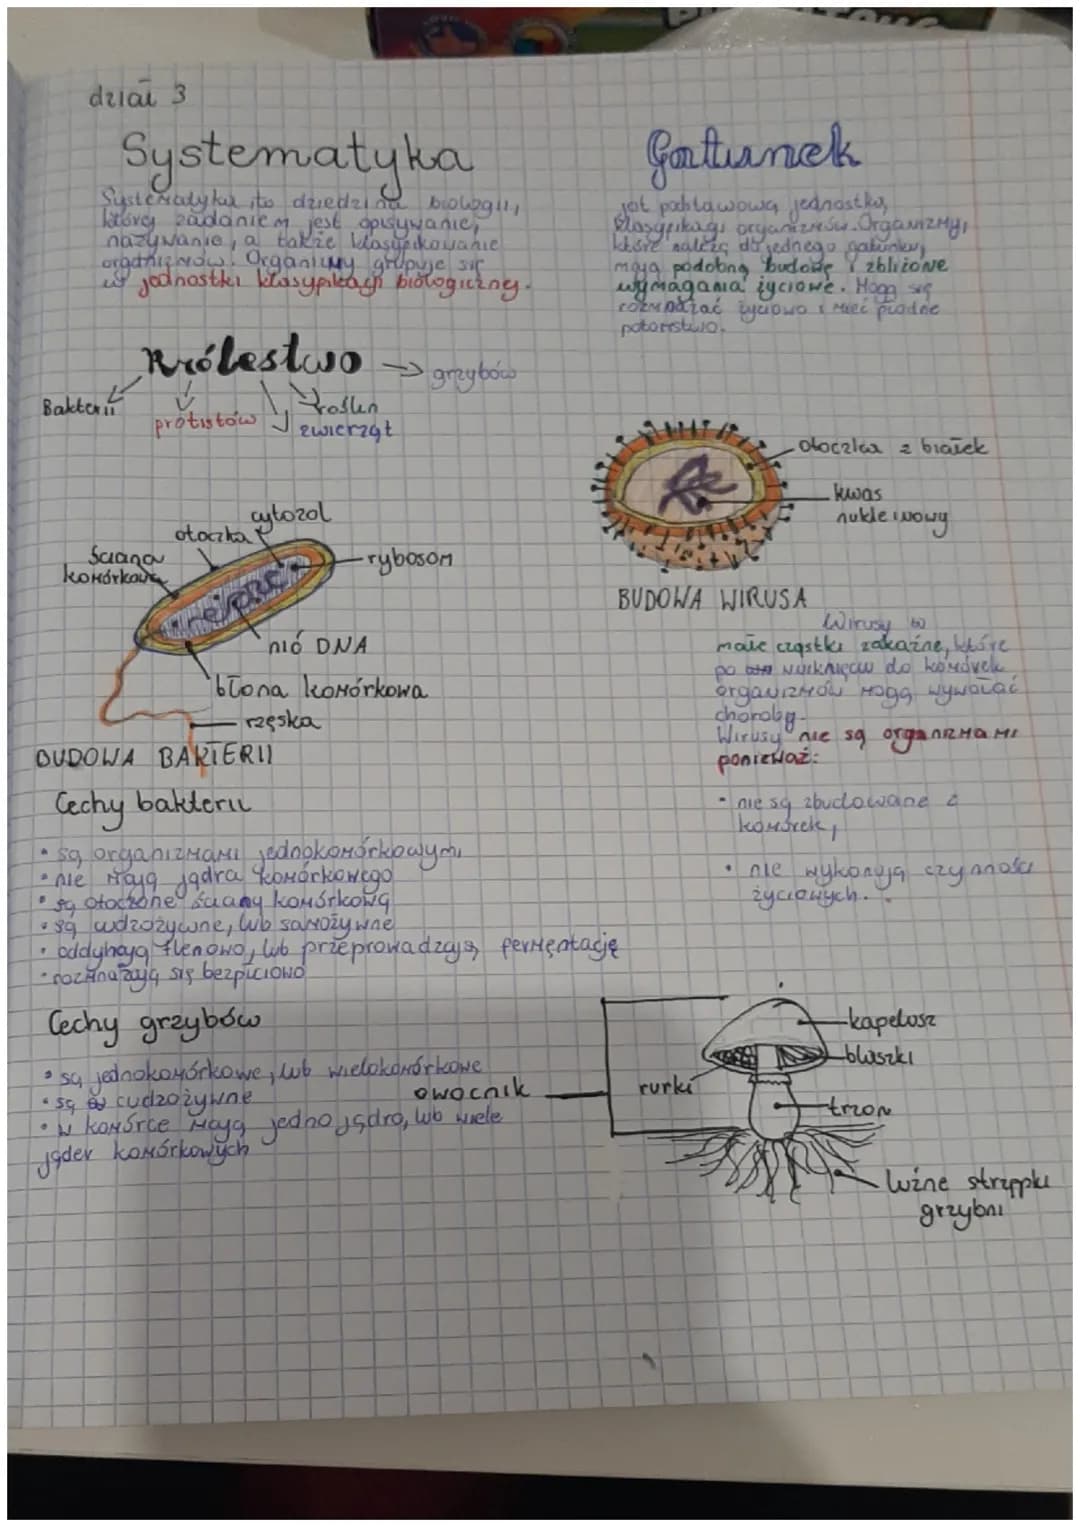 dział 3
Systematyka
Systematyka to dziedzina biologii,
której zadaniem jest opisywanie,
nazywanie, a także klasyfikowanie
organizmów. Organizmy grupuje się
w jednostki klasyfikacji biologicznej.
Gatunek
jest podstawową jednostką
klasyfikacji organizmów. Organizmy,
które należą do jednego gatunku,
mają podobną budowę i zbliżone
wymagania życiowe. Mogą się
rozmnażać i mieć płodne
potomstwo.
Królestwo → grzybów
Bakterii
protistów
roślin
zwierząt
otoczka z białek
kwas
nukleinowy
BUDOWA WIRUSA
cytozol
otoczka
ściana
komórkowa
rybosom
nić DNA
błona komórkowa
rzęska
BUDOWA BAKTERII
Wirusy to
małe cząstki zakaźne, które
po wniknięciu do komórek
organizmów mogą wywołać
choroby.
Wirusy nie są organizmami
ponieważ:
• nie są zbudowane z
komórek,
• nie wykonują czynności
życiowych.
Cechy bakterii
• są organizmami jednokomórkowymi
• nie mają jądra komórkowego
• są otoczone ściany komórkową
• są cudzożywne, lub samożywne
• oddychają tlenowo, lub przeprowadzają fermentację
• rozmnażają się bezpłciowo
Cechy grzybów
• są jednokomórkowe, lub wielokomórkowe
• są cudzożywne
• w komórce mają jedno jądro, lub wiele
jąder komórkowych
owocnik
rurki
kapelusz
blaszki
trzon
luźne strzępki
grzybni